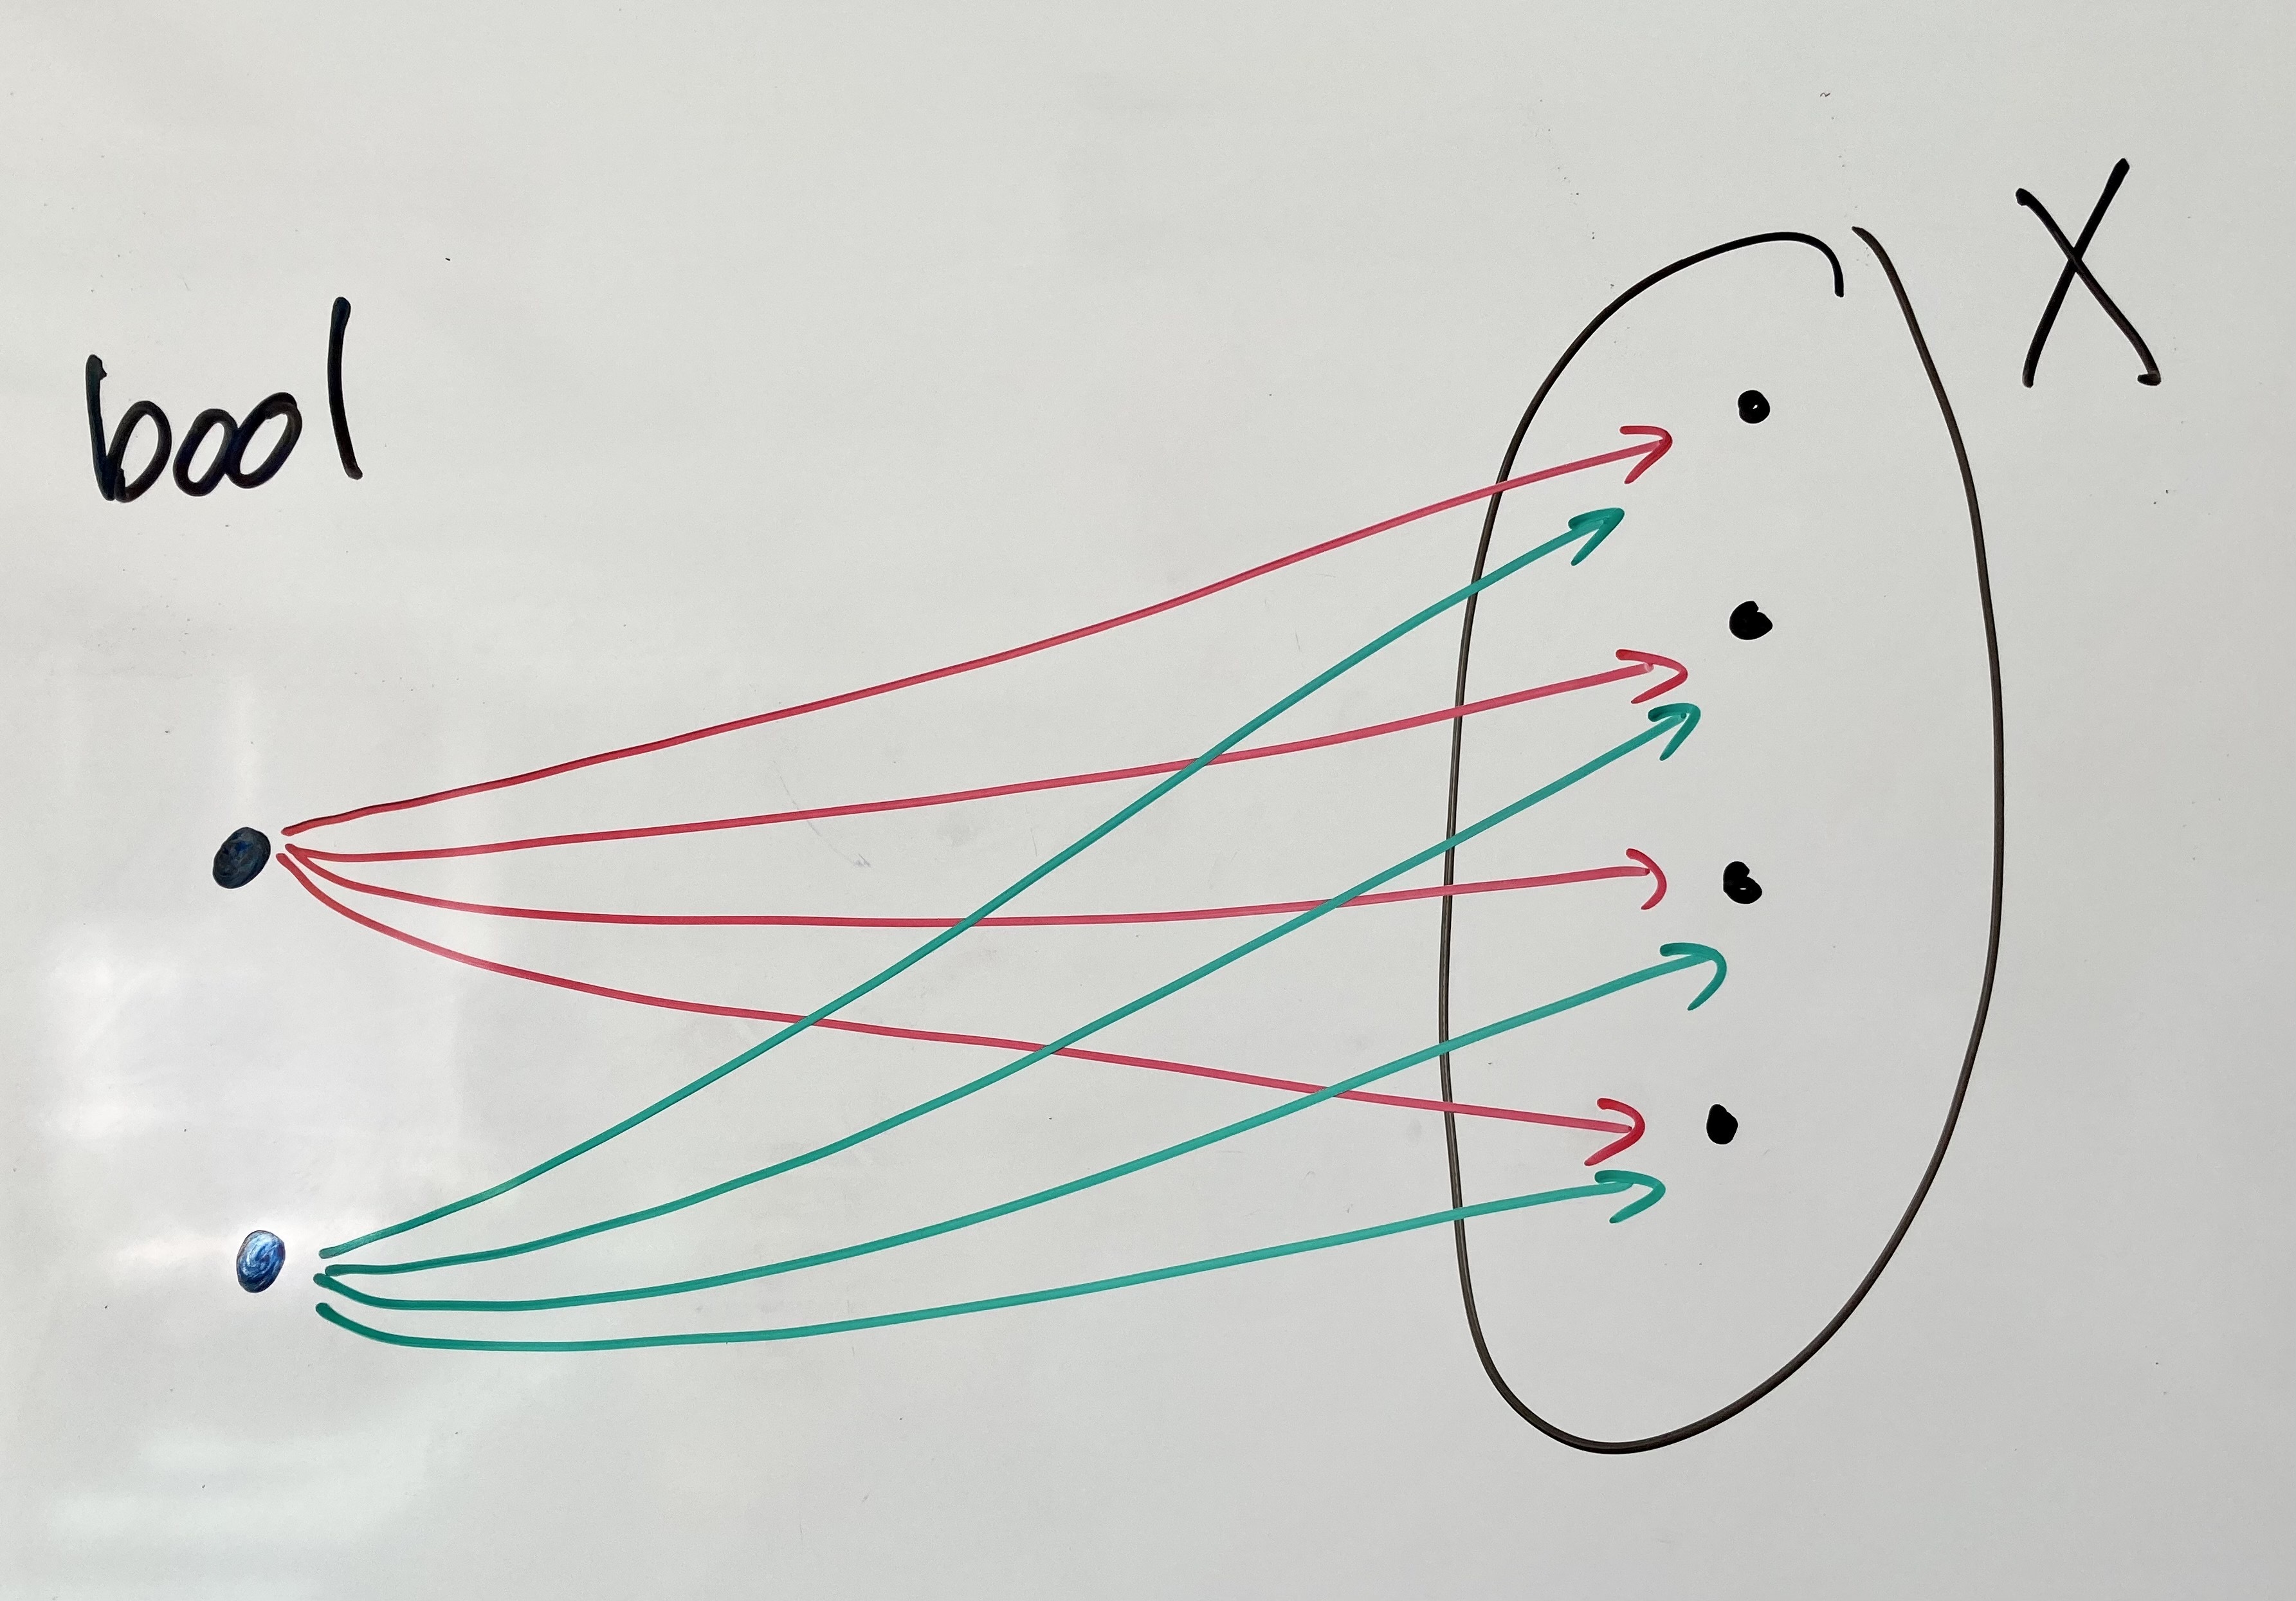 bool
X